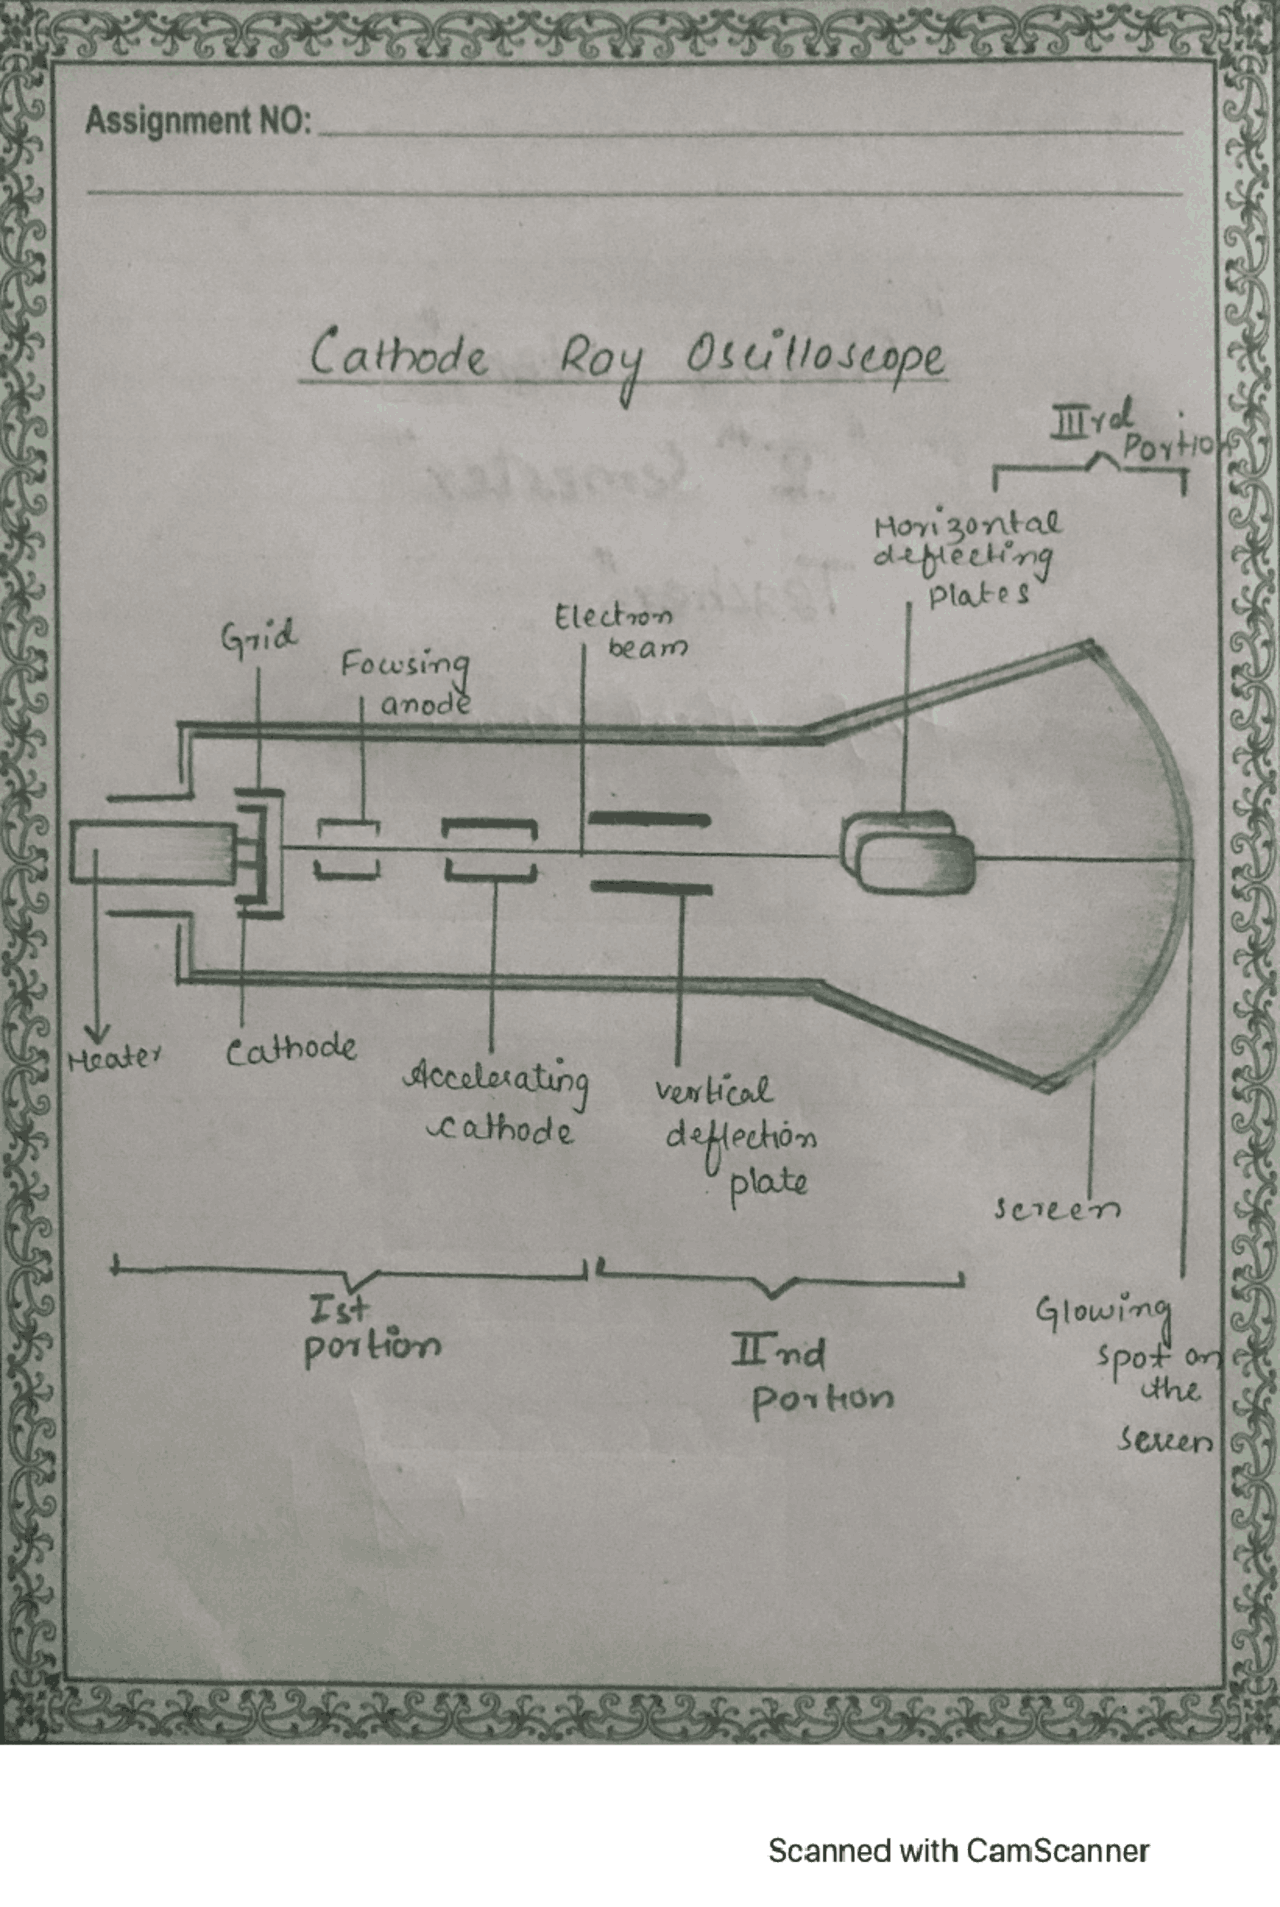 Assignment NO:
Cathode Ray Oscilloscope
IIIrd
Portion
Horizontal
deflecting
plates
Electron
beam
Grid
Focusing
anode
Heater
Cathode
Accelerating
cathode
vertical
deflection
plate
screen
Ist
portion
IInd
portion
Glowing
spot on
the
screen
Scanned with CamScanner